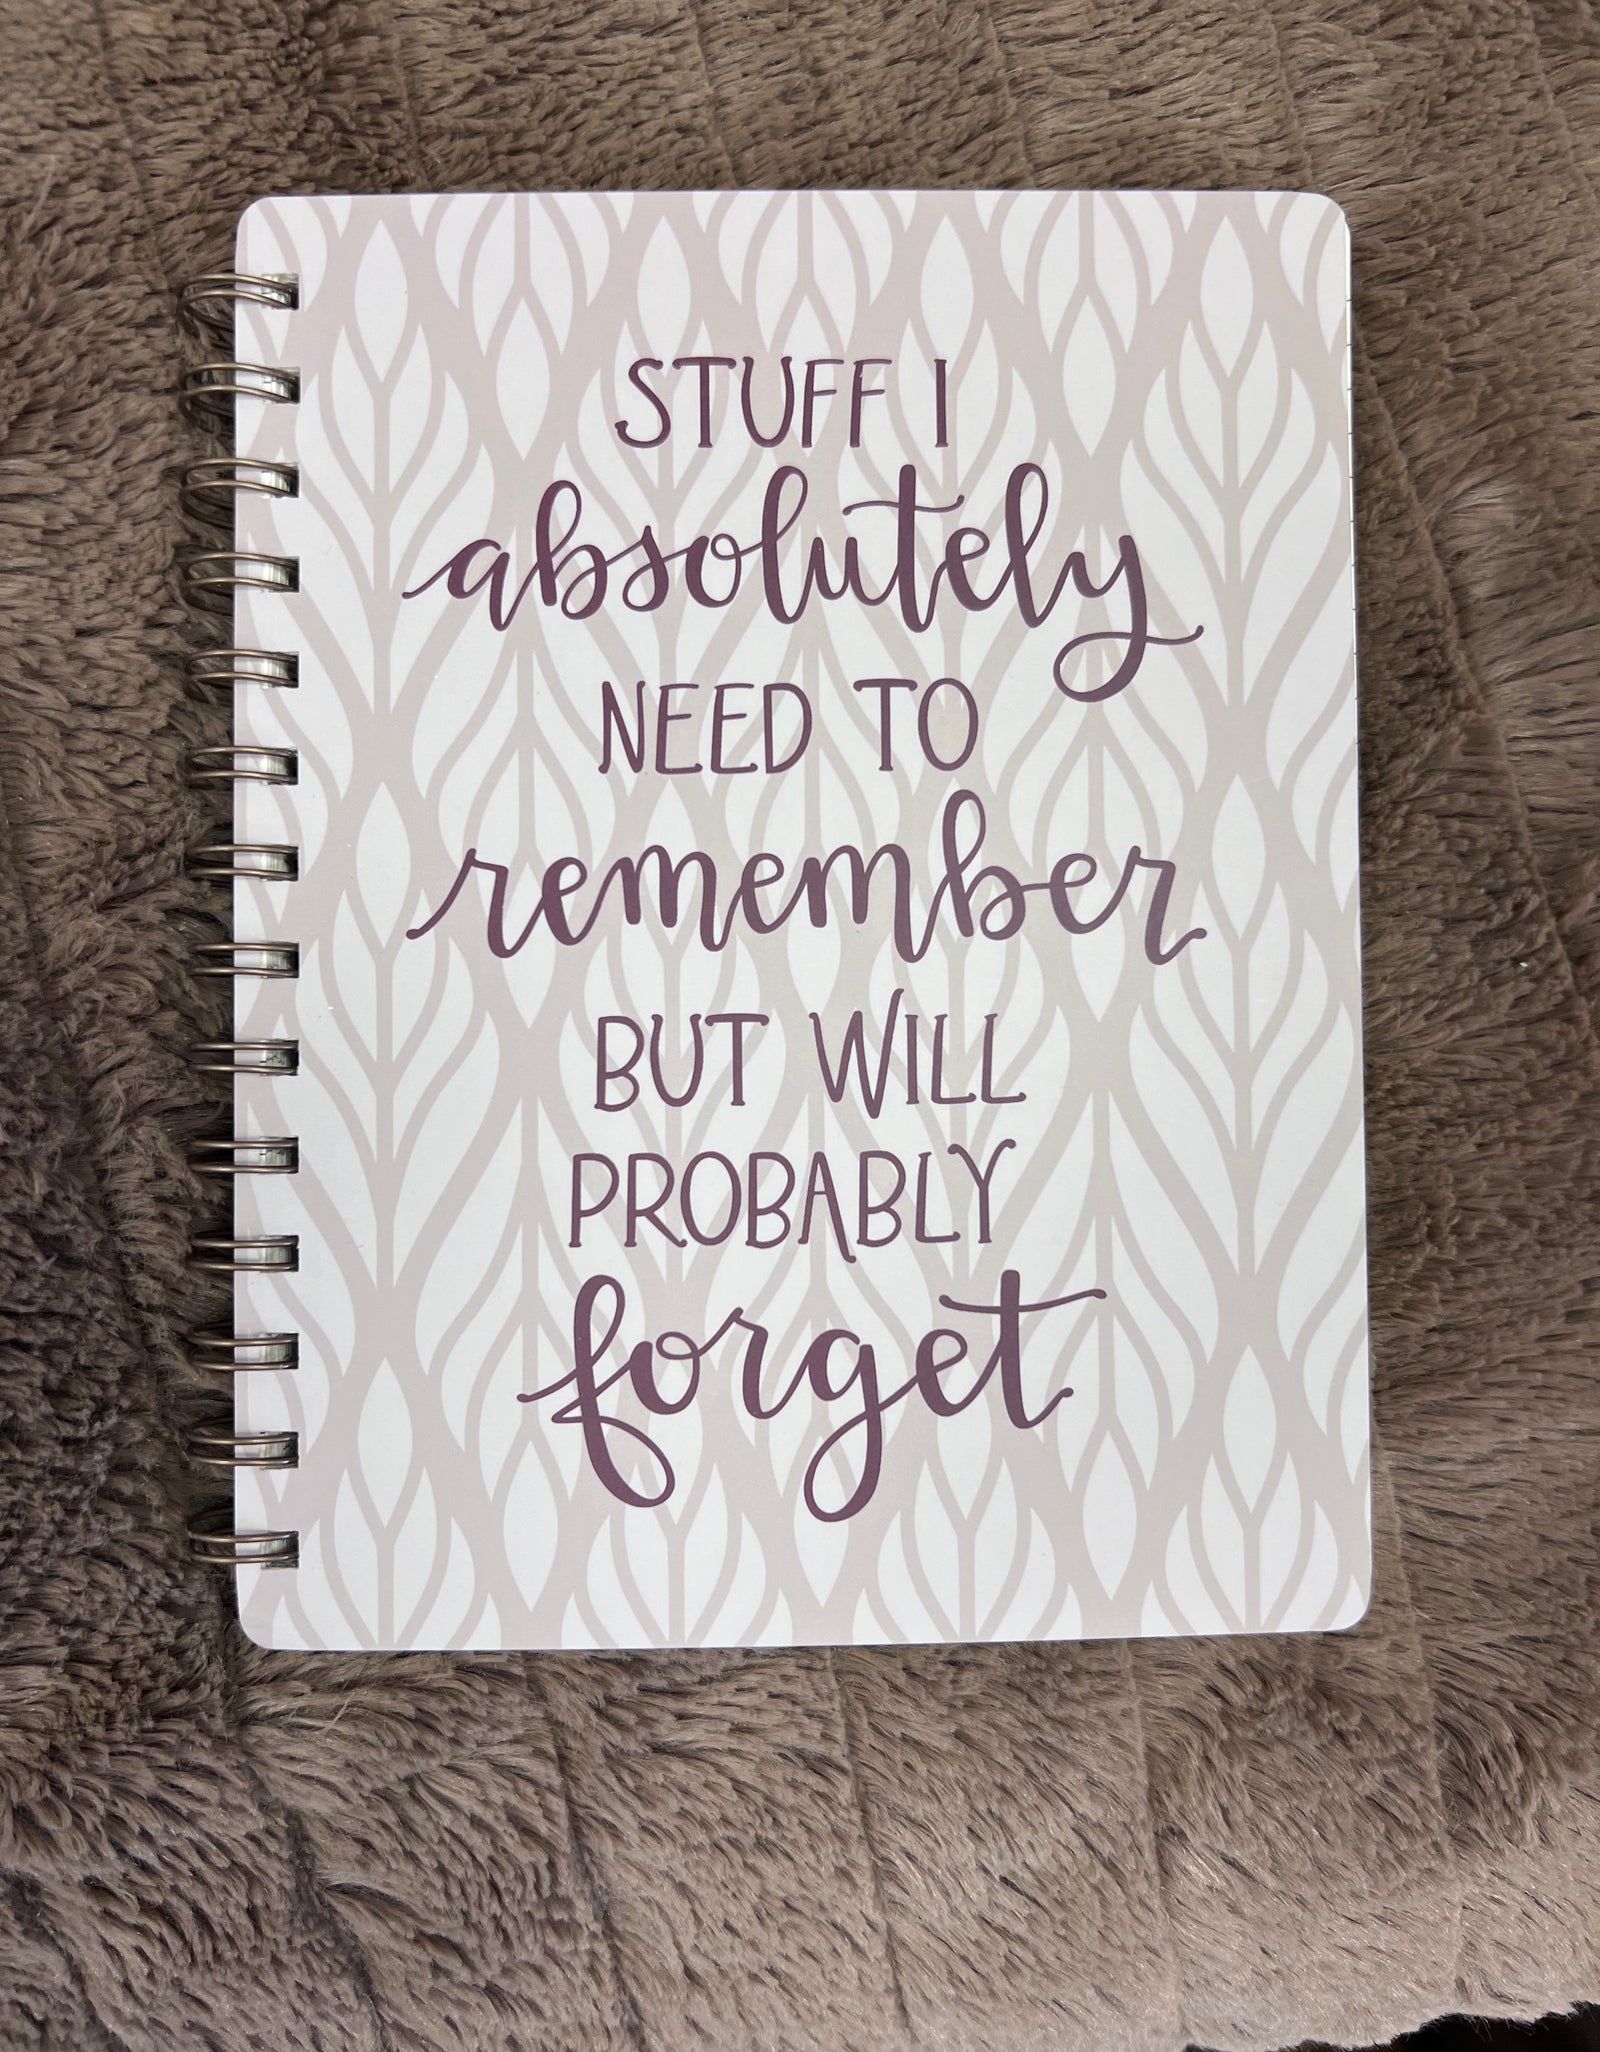 STUFF I
absolutely
NEED TO
remember
BUT WILL
PROBABLY
forget